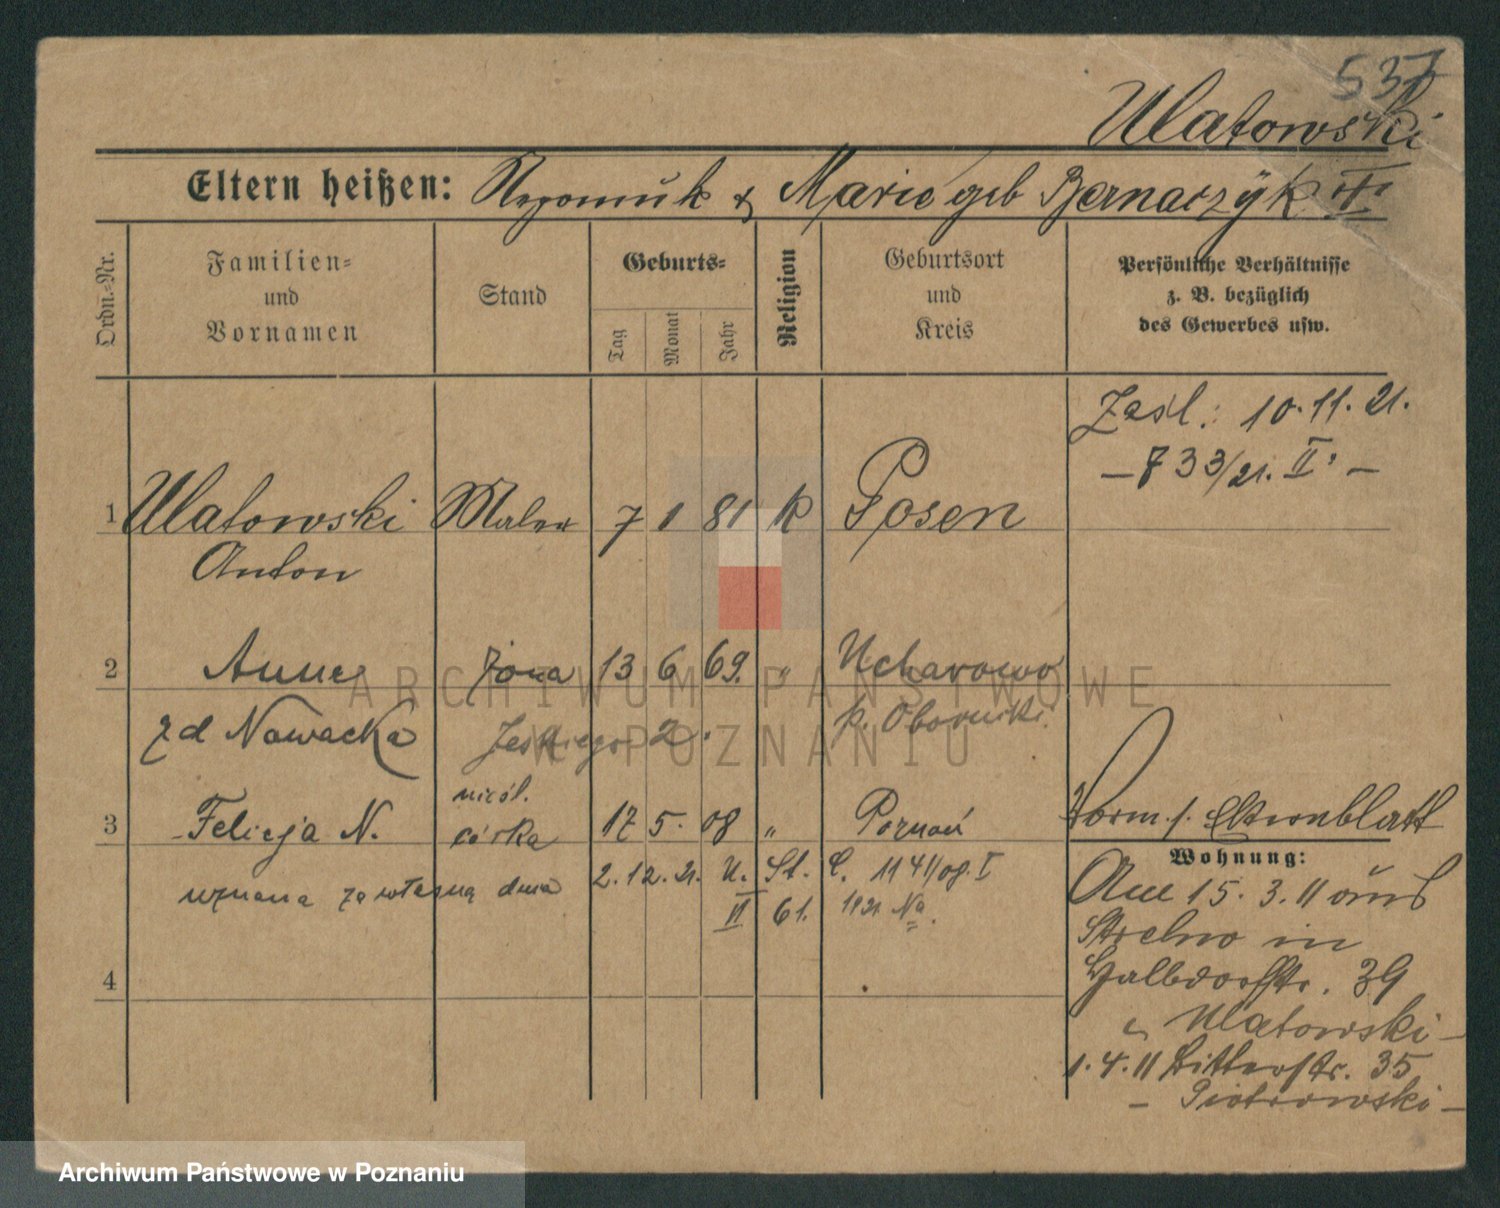 537
Ulatowski
Eltern heißen: Nepomuk & Marie geb Bernaczÿk
Ordn.-Nr.
Familien-
und
Vornamen
Stand
Geburts-
Tag
Monat
Jahr
Religion
Geburtsort
und
Kreis
Persönliche Verhältnisse
z. B. bezüglich
des Gewerbes usw.
Zaśl.: 10.11.21.
– 733/21. II. –
1 Ulatowski Maler 7 1 81 k Posen
Anton
2 Anna żona 13 6 69. " Ucharowo
zd Nawacka p. Oborniki.
3 Felicja N. córka 17 5. 08 " Poznań
uznana za własną dnia 2.12.21. U. St. C.
II 61. 1921.
4
Vorm. s. Elternblatt
Wohnung:
Am 15.3.11 aus
Strelno in
Halbdorfstr. 39
Ulatowski –
1.4.11 Ritterstr. 35
– Piotrowski –
ARCHIWUM PAŃSTWOWE
W POZNANIU
Archiwum Państwowe w Poznaniu